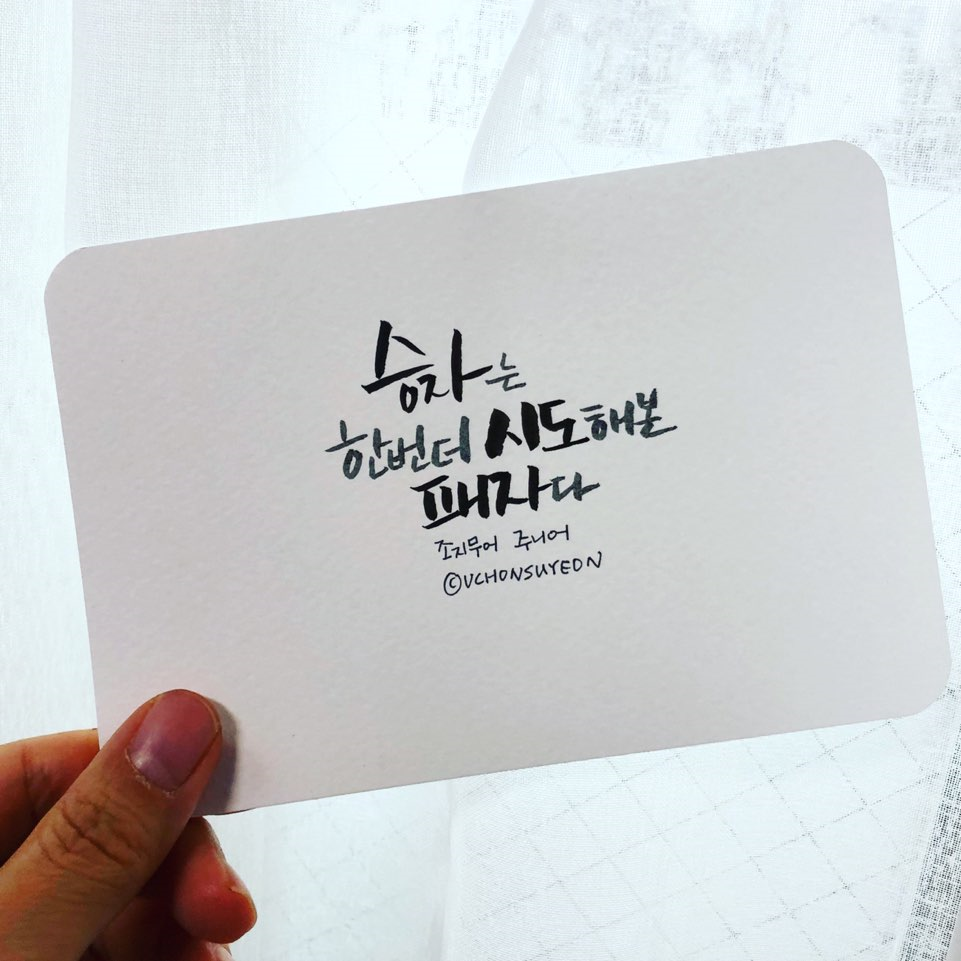 승자는
한번더 시도해본
패자다
조지무어 주니어
©UCHONSUYEON